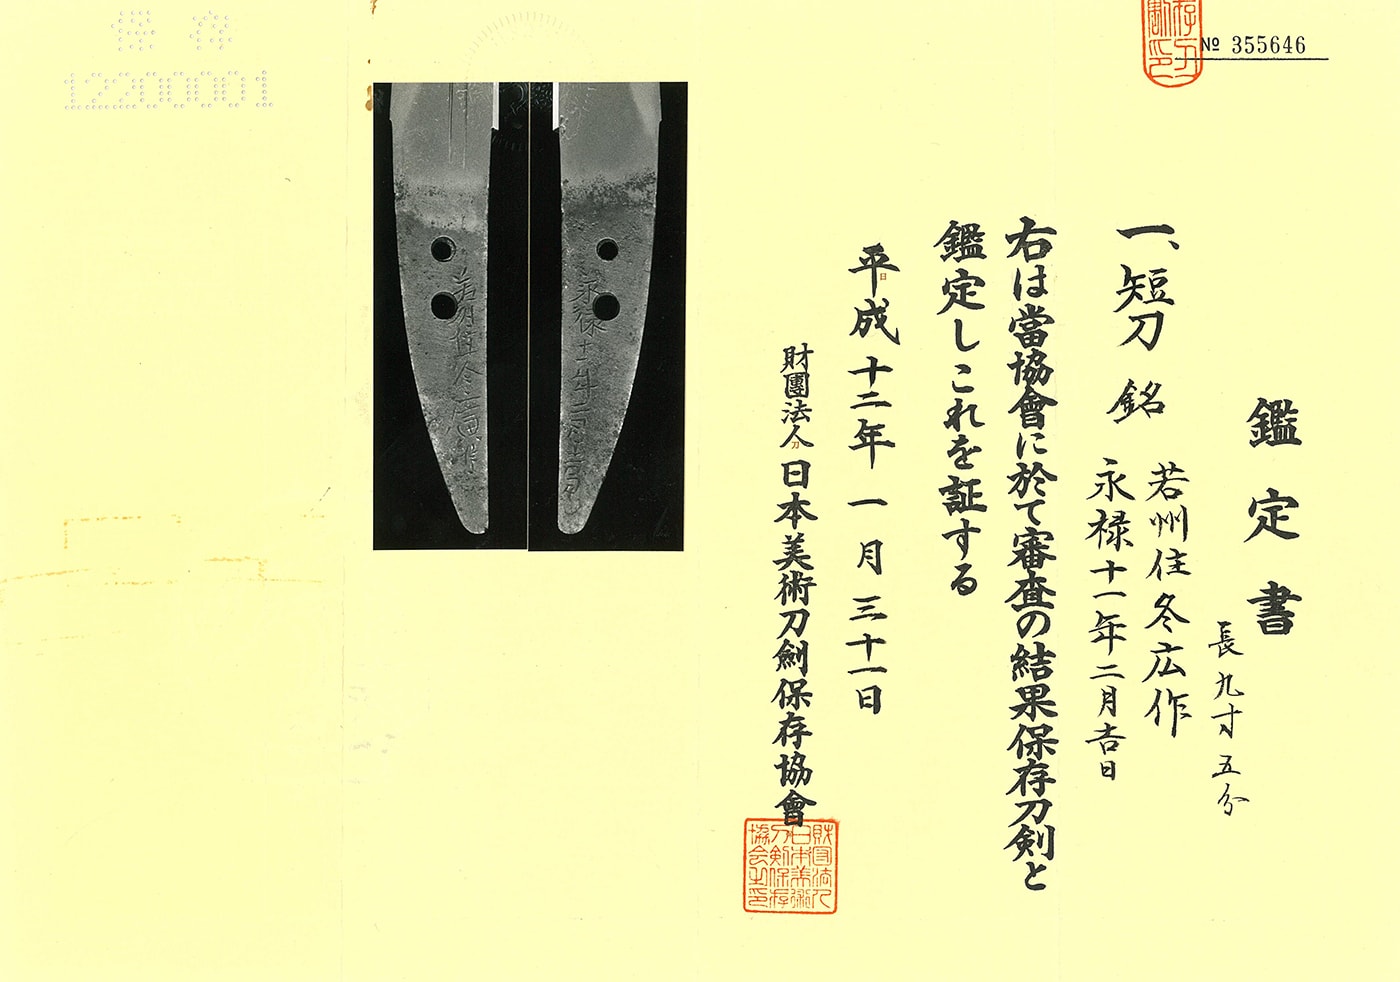 № 355646
鑑定書
長九寸五分
一、短刀 銘
若州住冬広作
永禄十一年二月吉日
右は當協會に於て審査の結果保存刀剣と
鑑定しこれを証する
平成十二年一月三十一日
財團法人 日本美術刀劍保存協會
保存
1220001